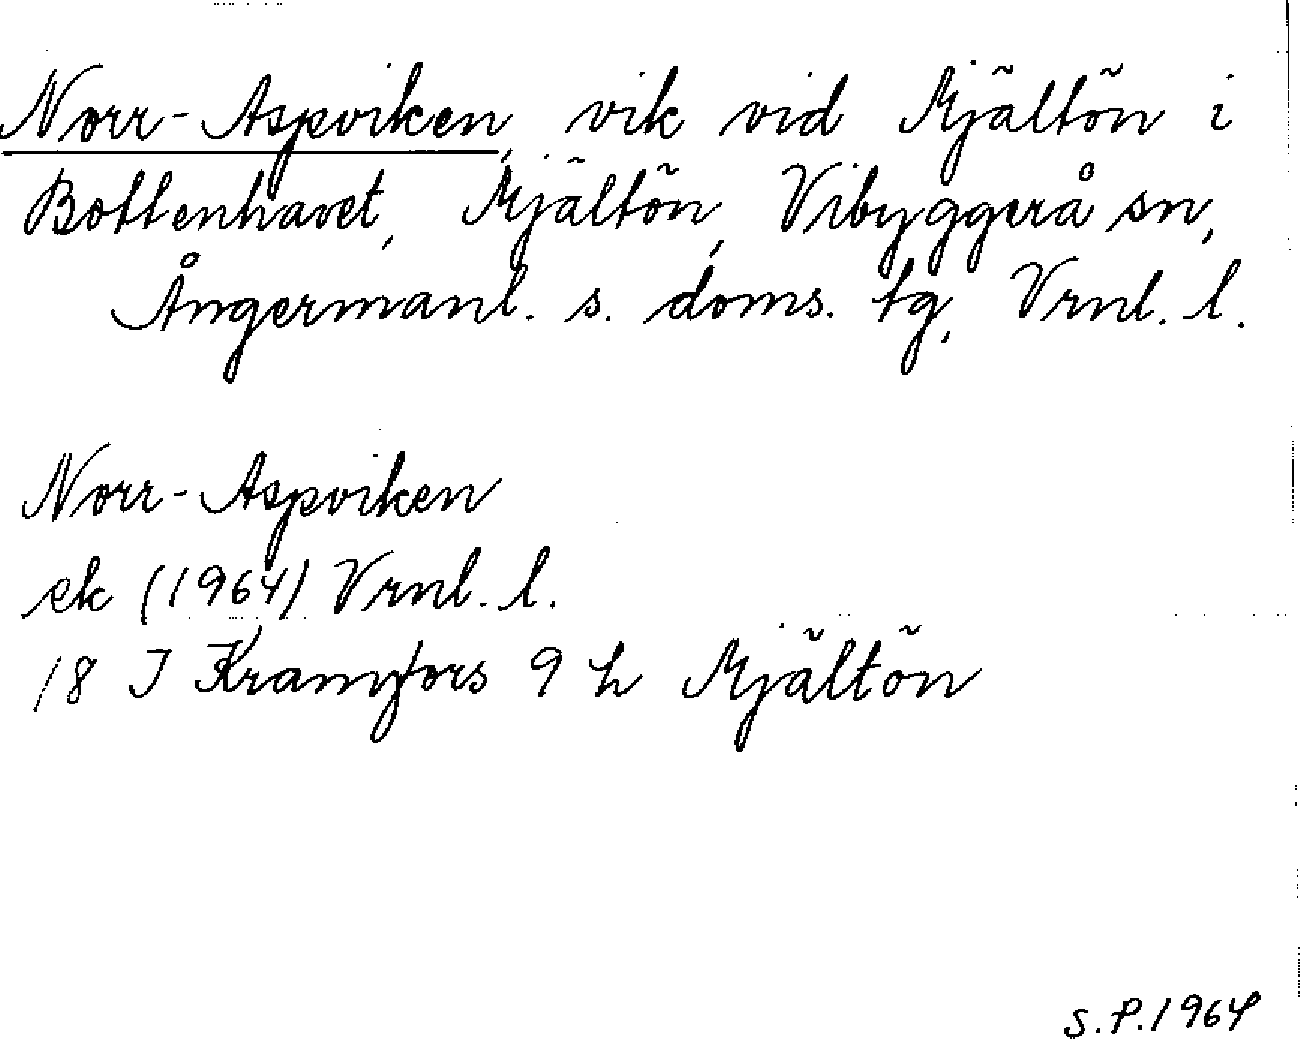 Norr-Aspviken, vik vid Mjältön i
Bottenhavet, Mjältön, Vibyggerå sn,
Ångermanl. s. doms. tg, Vrnl. l.
Norr-Aspviken
ek (1964) Vrnl. l.
18 J Kramfors 9 h Mjältön
S.P.1964